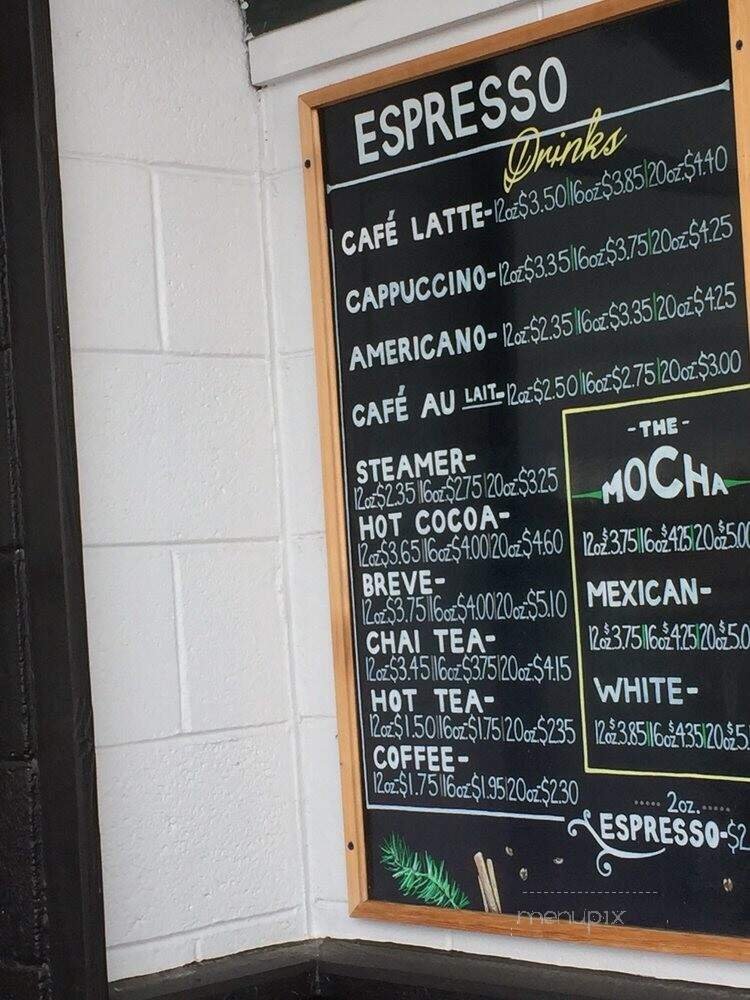 ESPRESSO
Drinks
CAFÉ LATTE-12oz-$3.50|16oz-$3.85|20oz-$4.40
CAPPUCCINO-12oz-$3.35|16oz-$3.75|20oz-$4.25
AMERICANO-12oz-$2.35|16oz-$3.35|20oz-$4.25
CAFÉ AU LAIT-12oz-$2.50|16oz-$2.75|20oz-$3.00
STEAMER-
12oz-$2.35|16oz-$2.75|20oz-$3.25
HOT COCOA-
12oz-$3.65|16oz-$4.00|20oz-$4.60
BREVE-
12oz-$3.75|16oz-$4.00|20oz-$5.10
CHAI TEA-
12oz-$3.45|16oz-$3.75|20oz-$4.15
HOT TEA-
12oz-$1.50|16oz-$1.75|20oz-$2.35
COFFEE-
12oz-$1.75|16oz-$1.95|20oz-$2.30
-THE-
MOCHA
12oz-$3.75|16oz-$4.25|20oz-$5.00
MEXICAN-
12oz-$3.75|16oz-$4.25|20oz-$5.0
WHITE-
12oz-$3.85|16oz-$4.35|20oz-$5.
2oz.
ESPRESSO-$2
menupix